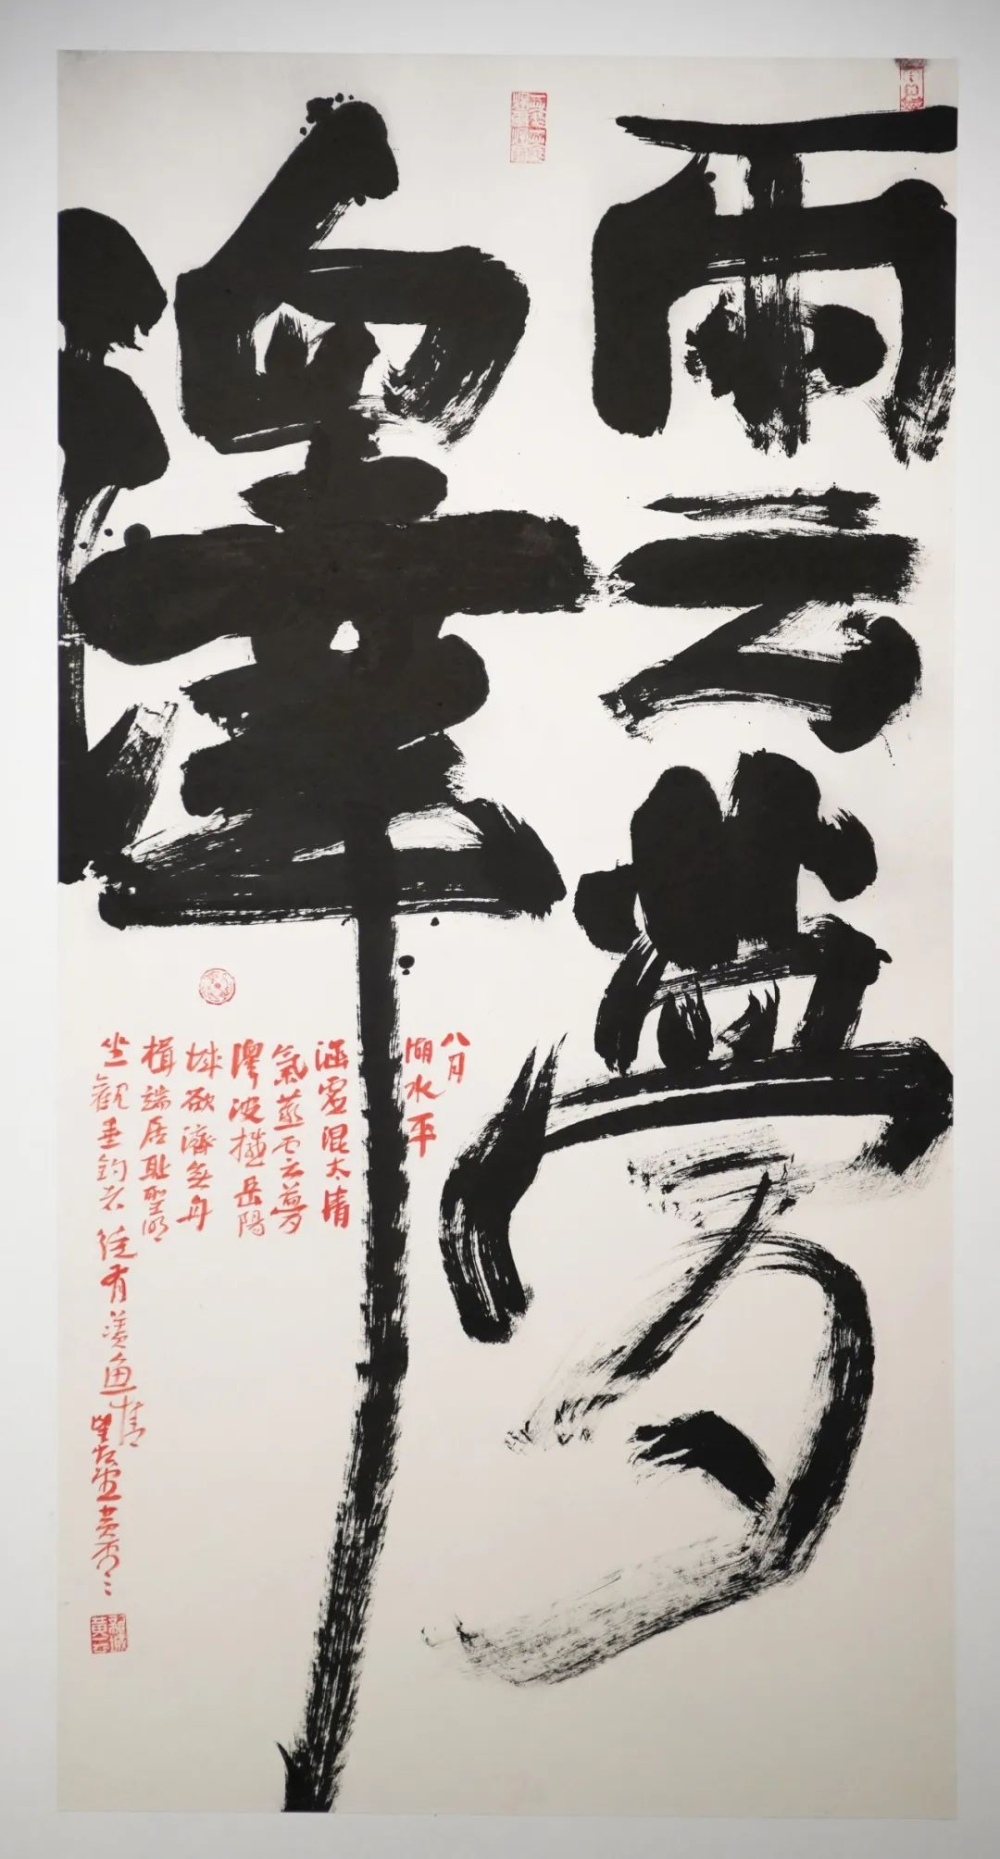 雲夢
澤
八月
湖水平
涵虛混太清
氣蒸雲夢
澤波撼岳陽
城欲濟無舟
楫端居恥聖明
坐觀垂釣者徒有羨魚情